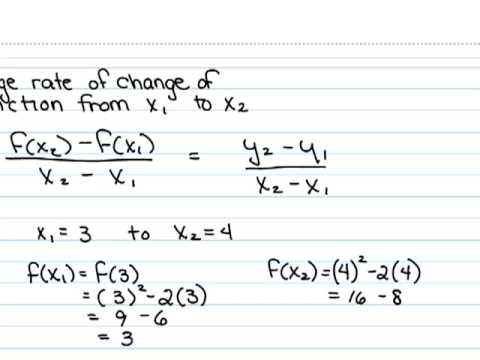 ge rate of change of
nction from x₁ to x₂
F(x₂) - f(x₁) / x₂ - x₁ = y₂ - y₁ / x₂ - x₁
x₁ = 3 to x₂ = 4
f(x₁) = f(3)
= (3)² - 2(3)
= 9 - 6
= 3
F(x₂) = (4)² - 2(4)
= 16 - 8